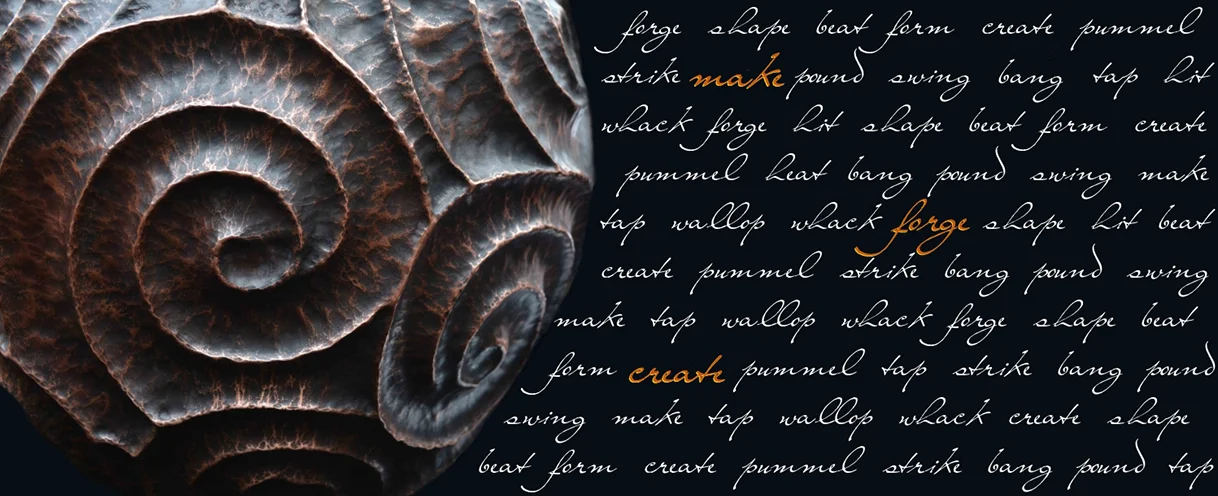 forge shape beat form create pummel
strike make pound swing bang tap hit
whack forge hit shape beat form create
pummel heat bang pound swing make
tap wallop whack forge shape hit beat
create pummel strike bang pound swing
make tap wallop whack forge shape beat
form create pummel tap strike bang pound
swing make tap wallop whack create shape
beat form create pummel strike bang pound tap